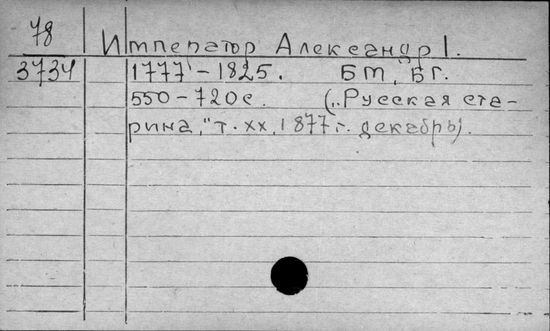 78
Император Александр I.
3734 1777 - 1825. БМ, БГ.
550-720с. („Русская ста-
рина," т. XX, 1877 г. декабрь).